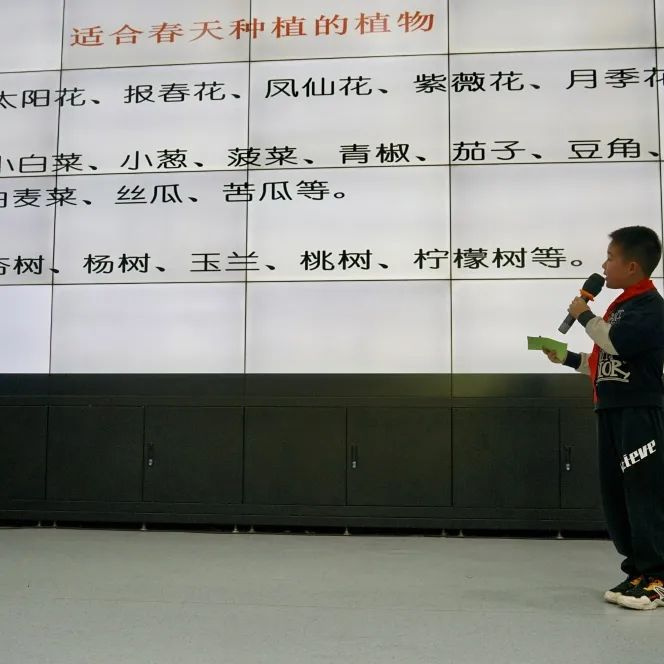 适合春天种植的植物
太阳花、报春花、凤仙花、紫薇花、月季花
小白菜、小葱、菠菜、青椒、茄子、豆角、
麦菜、丝瓜、苦瓜等。
树、杨树、玉兰、桃树、柠檬树等。
ieve